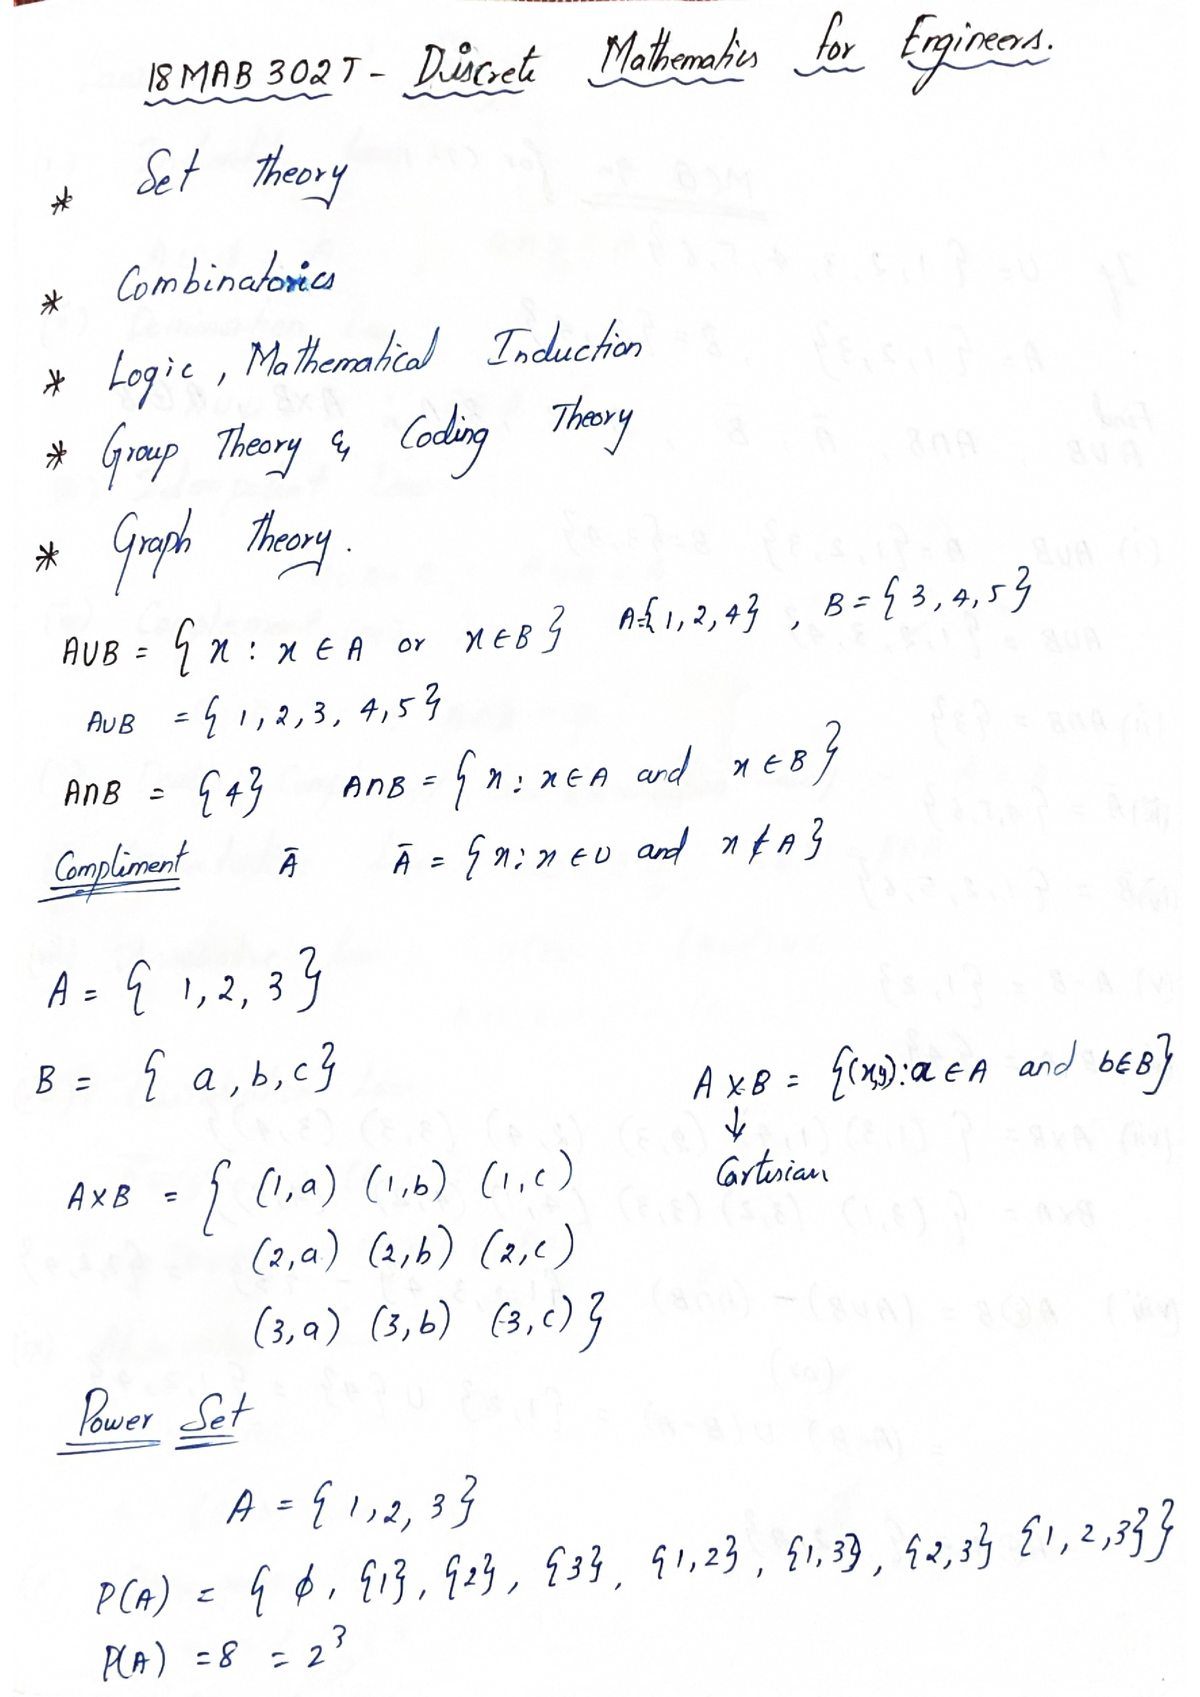 18MAB302T - Discrete Mathematics for Engineers.
* Set Theory
* Combinatorics
* Logic, Mathematical Induction
* Group Theory & Coding Theory
* Graph Theory.
A∪B = {x : x ∈ A or x ∈ B} A={1,2,4}, B = {3,4,5}
A∪B = {1,2,3,4,5}
A∩B = {4} A∩B = {x : x ∈ A and x ∈ B}
Compliment Ā Ā = {x : x ∈ U and x ∉ A}
A = {1,2,3}
B = {a,b,c} A×B = {(x,y): a ∈ A and b∈B}
↓
Cartesian
A×B = { (1,a) (1,b) (1,c)
(2,a) (2,b) (2,c)
(3,a) (3,b) (3,c) }
Power Set
A = {1,2,3}
P(A) = { ϕ, {1}, {2}, {3}, {1,2}, {1,3}, {2,3} {1,2,3}}
P(A) = 8 = 2³